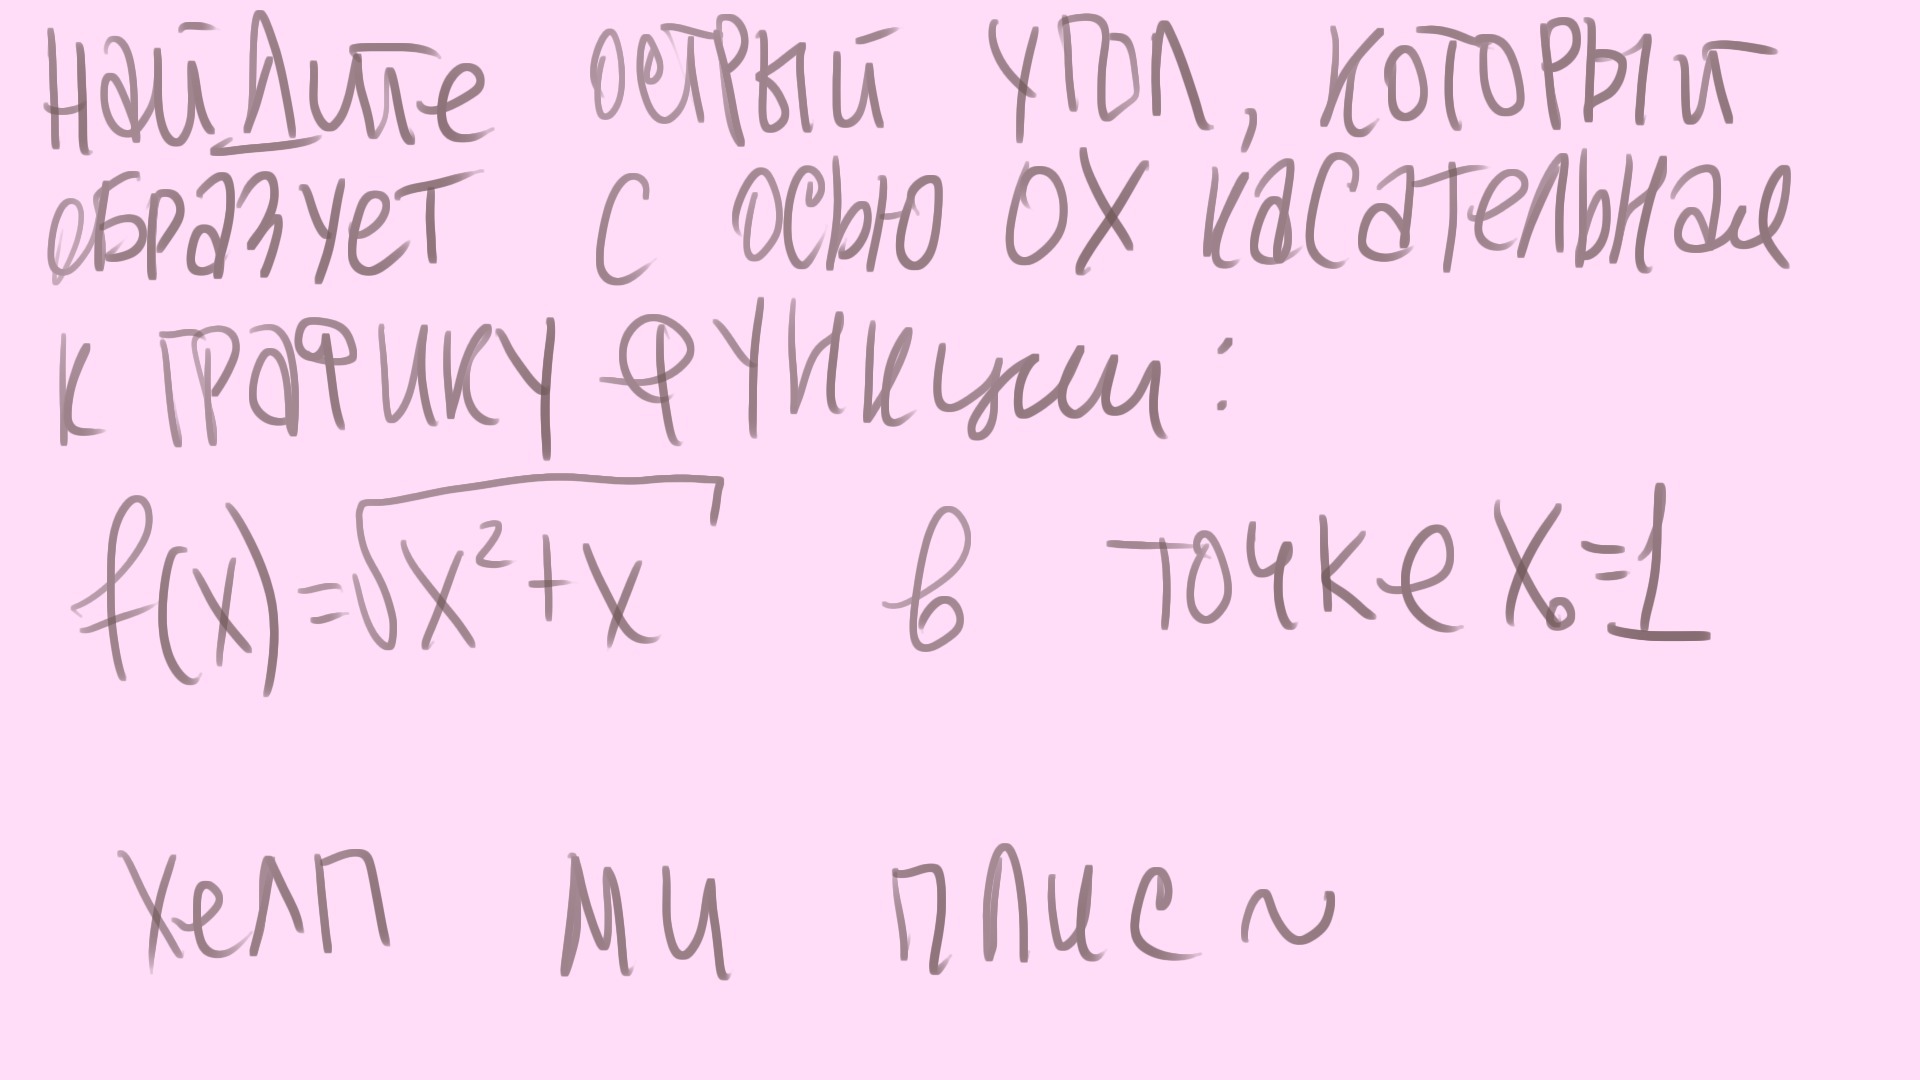 найдите острый угол, который
образует с осью ОХ касательная
к графику функции:
f(x)=√x²+x в точке x₀=1
хелп ми плис ~